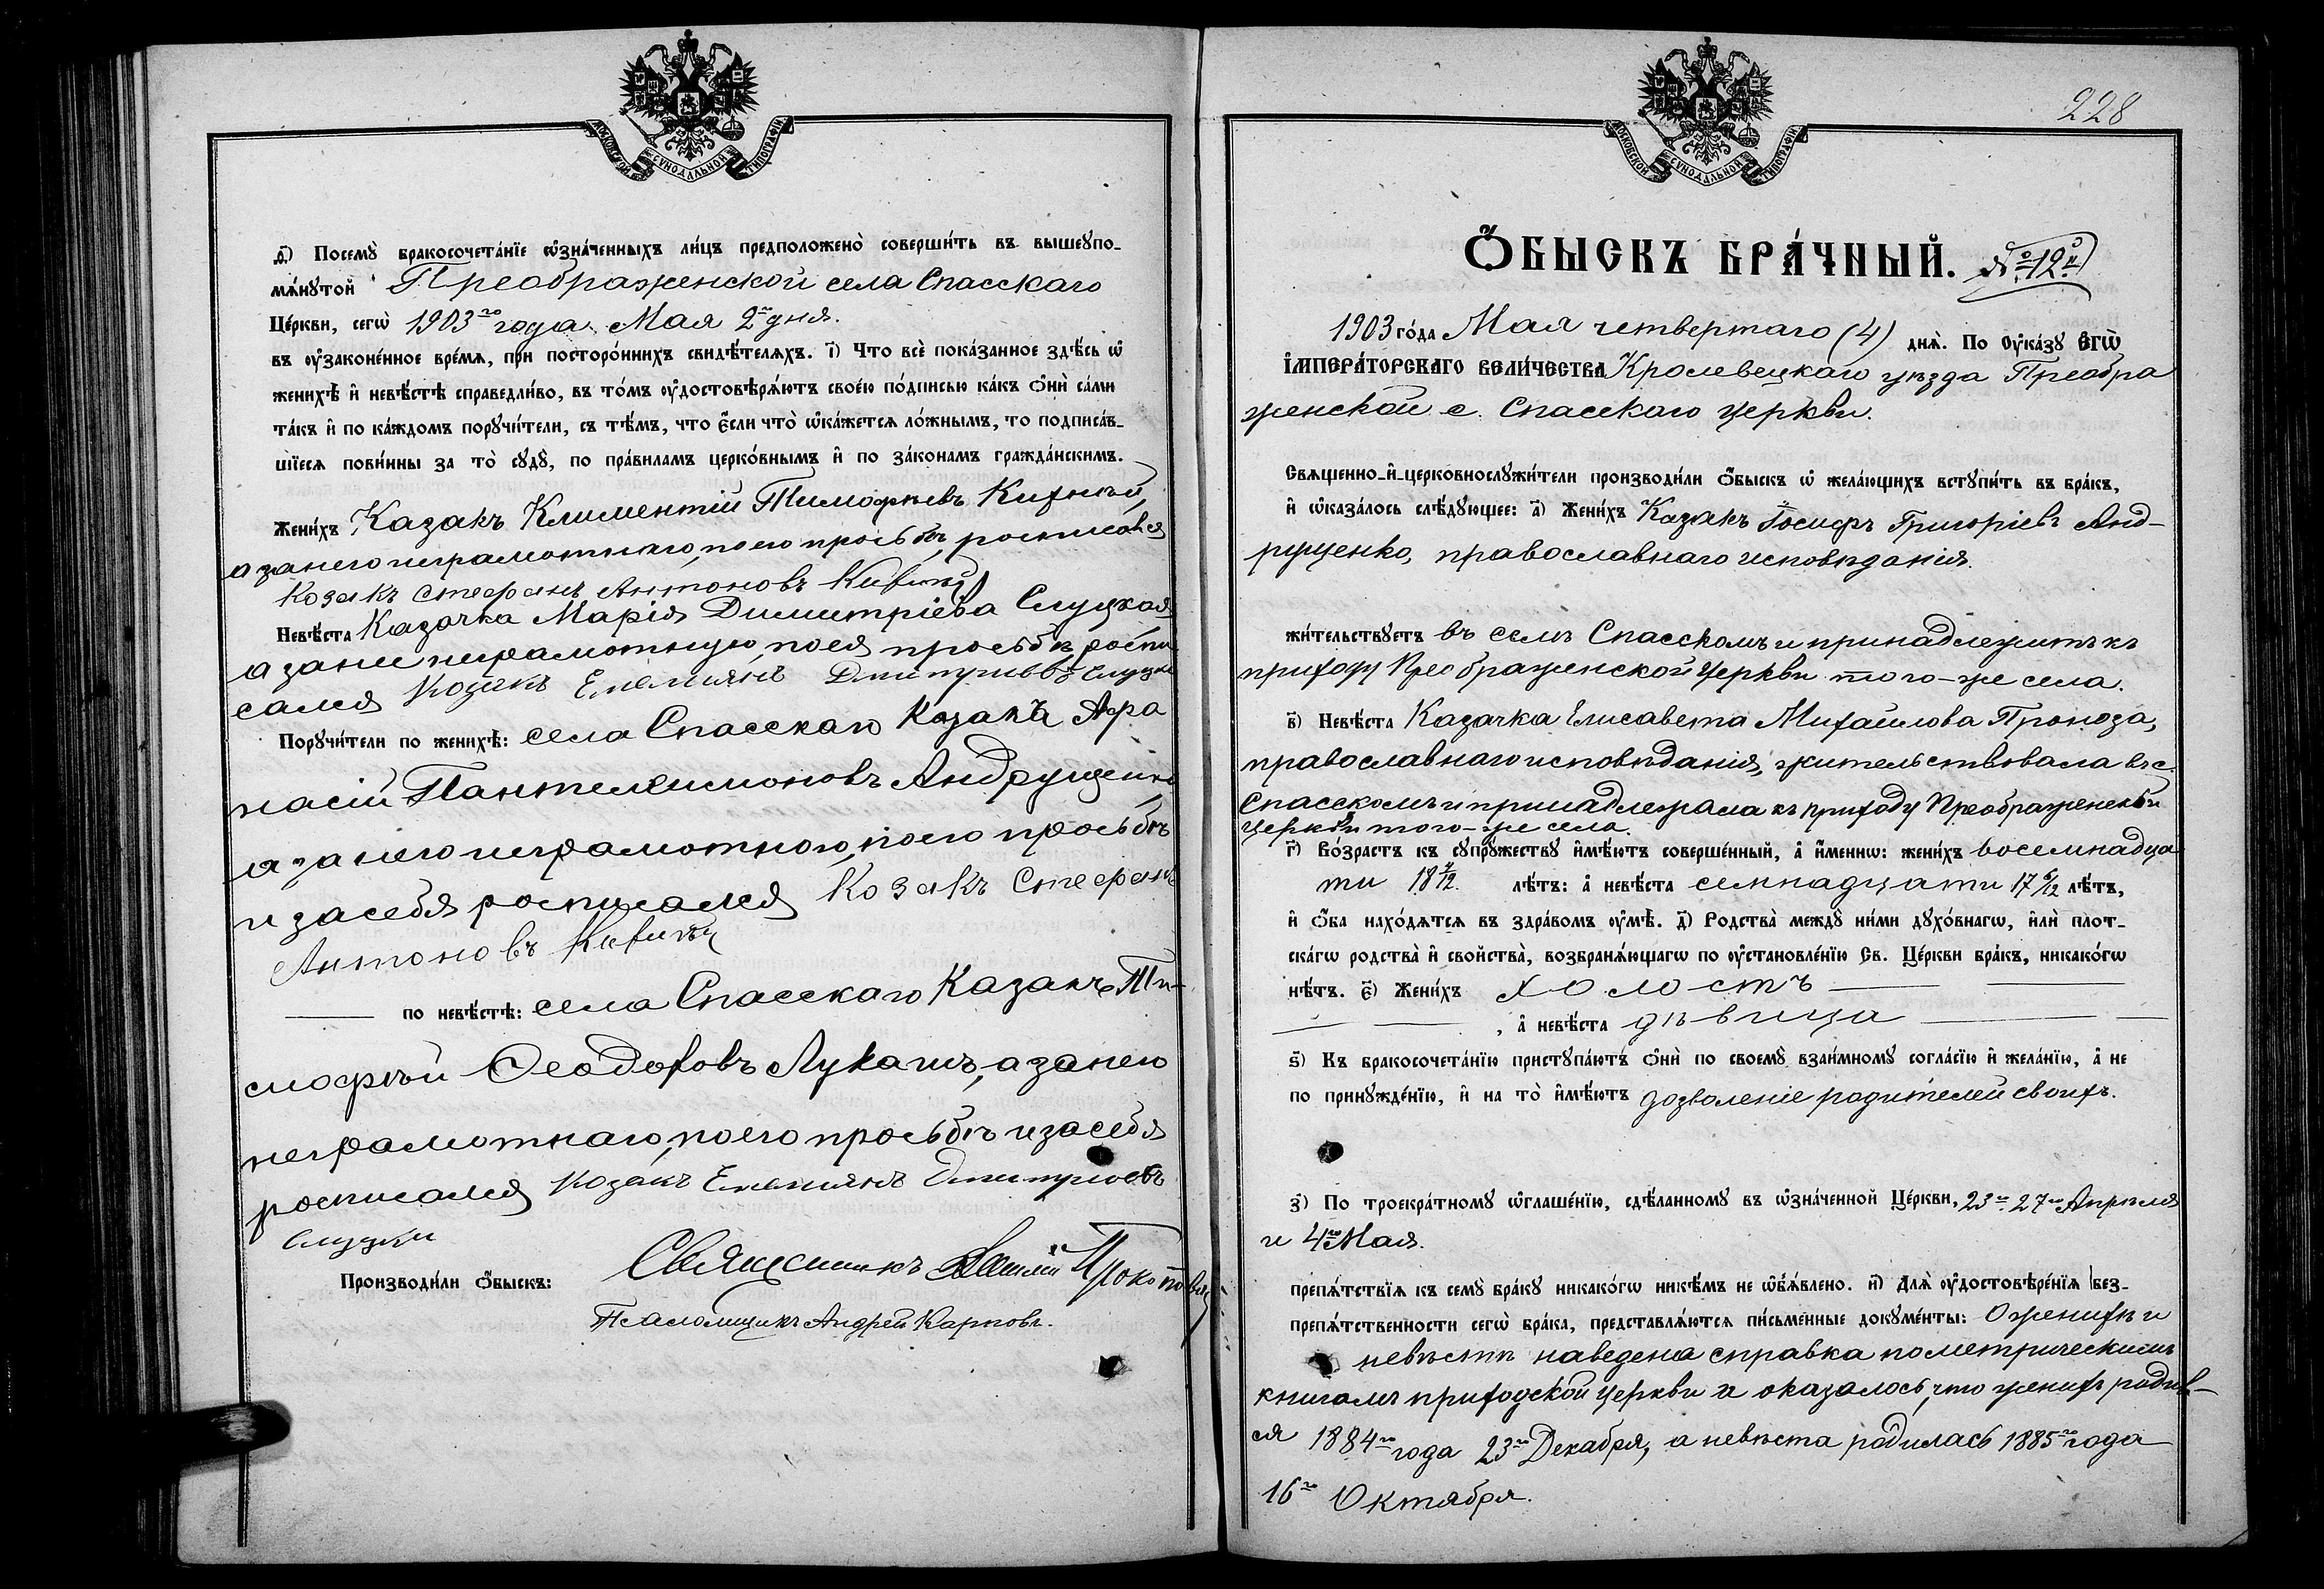 МОСКОВСКОЙ СѴНОДАЛЬНОЙ ТИПОГРАФІИ
д҃) Посемꙋ̀ бракосочета́нїе ѡ҆зна́ченныхъ ли́цъ предположено̀ соверши́ть въ вышеꙋпо-
мѧ́нꙋтой Преображенской села Спасскаго
Це́ркви, сегѡ̀ 1903го года Мая 2го дня.
въ ᲂу҆законе́нное вре́мѧ, при посторо́ннихъ свидѣ́телѧхъ. і҃) Что всѐ пока́занное здѣ́сь ѡ҆
женихѣ̀ и҆ невѣ́стѣ справедли́во, въ то́мъ ᲂу҆достовѣрѧ́ютъ свое́ю по́дписью ка́къ ѻ҆нѝ са́ми
та́къ и҆ по ка́ждомъ порꙋчи́тели, съ тѣ́мъ, что є҆́сли что̀ ѡ҆ка́жетсѧ ло́жнымъ, то подписа́в-
шїесѧ пови́нны за то̀ сꙋдꙋ̀, по пра́виламъ церко́внымъ и҆ по зако́намъ гражда́нскимъ.
Жени́хъ Казакъ Климентій Тимофѣевъ
а за него неграмотнаго, по его просьбѣ, росписовся
Козакъ Стефанъ Антоновъ
Невѣ́ста Казачка Марія Димитріева Слуцкая
а за нее неграмотную, по ея просьбѣ, роспи
сался Козакъ Емельянъ Дмитриевъ
Порꙋчи́тели по женихѣ̀: села Спасскаго Казакъ Афа
насій Пантелеимоновъ Андрущенко
а за него неграмотного, по его просьбѣ
и за себя росписался Козакъ Стефанъ
Антоновъ
по невѣ́стѣ: села Спасскаго Казакъ Ти-
мофѣй Ѳеодоровъ Лукашъ, а за него
неграмотнаго, по его просьбѣ и за себя
росписался Козакъ Емельянъ Дмитриевъ
Слуцки
Производи́ли ѻ҆́быскъ: Священникъ Василій Прокопович
Псаломщикъ Андрей Карповъ.
228
МОСКОВСКОЙ СѴНОДАЛЬНОЙ ТИПОГРАФІИ
Ѻ҆́БЫСКЪ БРА́ЧНЫЙ. № 12й
1903 го́да Мая четвертаго (4) днѧ̀. По Оу҆ка́зꙋ ЄГѠ̀
І҆МПЕРА́ТОРСКАГО ВЕЛИ́ЧЕСТВА Кролевецкаго уѣзда Преобра
женской с. Спасскаго церкви.
Свѧщенно-и҆-церковнослꙋжи́тели производи́ли ѻ҆́быскъ ѡ҆ жела́ющихъ встꙋпи́ть въ бра́къ,
и҆ ѡ҆каза́лось слѣ́дꙋющее: а҃) Жени́хъ Казакъ Іосифъ Григоріевъ Анд-
рущенко, православнаго исповѣданія.
жи́тельствꙋетъ въ селѣ Спасскомъ и принадлежитъ къ
приходу Преображенской Церкви того-же села.
в҃) Невѣ́ста Казачка Елисавета Михаилова Проноза,
православнаго исповѣданія, жительствовала въ с.
Спасскомъ и принадлежала къ приходу Преображенской
церкви того-же села.
г҃) Во́зрастъ къ сꙋпрꙋ́жествꙋ и҆мѣ́ютъ соверше́нный, а҆ и҆́меннѡ: жени́хъ восемнадца
ти 18 4/12 лѣ́тъ: а҆ невѣ́ста семнадцати 17 6/12 лѣ́тъ,
и҆ ѻ҆́ба нахо́дѧтсѧ въ здра́вомъ ᲂу҆мѣ̀. д҃) Родства̀ междꙋ̀ ни́ми дꙋхо́внагѡ, и҆лѝ пло́т-
ска́гѡ родства̀ и҆ сво́йства̀, возбранѧ́ющагѡ по ᲂу҆становле́нїю Св. Це́ркви бра́къ, никако́гѡ
нѣ́тъ. є҃) Жени́хъ холостъ
, а҆ невѣ́ста дѣвица
ѕ҃) Къ бракосочета́нїю пристꙋпа́ютъ ѻ҆нѝ по своемꙋ̀ взаи́мномꙋ согла́сїю и҆ жела́нїю, а҆ не
по принꙋжде́нїю, и҆ на то̀ и҆мѣ́ютъ дозволеніе родителей своихъ.
з҃) По троекра́тномꙋ ѡ҆глаше́нїю, сдѣ́ланномꙋ въ ѡ҆зна́ченной Це́ркви, 23го 27го Апрѣля
и 4го Мая.
препѧ́тствїѧ къ семꙋ̀ бра́кꙋ никако́гѡ никѣ́мъ не ѡ҆б̾ѧ́влено. и҃) Длѧ̀ ᲂу҆достовѣре́нїѧ без-
препѧ́тственности сегѡ̀ бра́ка, представлѧ́ютсѧ пи́сьменные докꙋме́нты: О женихѣ и
невѣстѣ наведена справка по метрическимъ
книгамъ приходской церкви и оказалось, что женихъ родил-
ся 1884го года 23го Декабря, а невѣста родилась 1885го года
16го Октября.